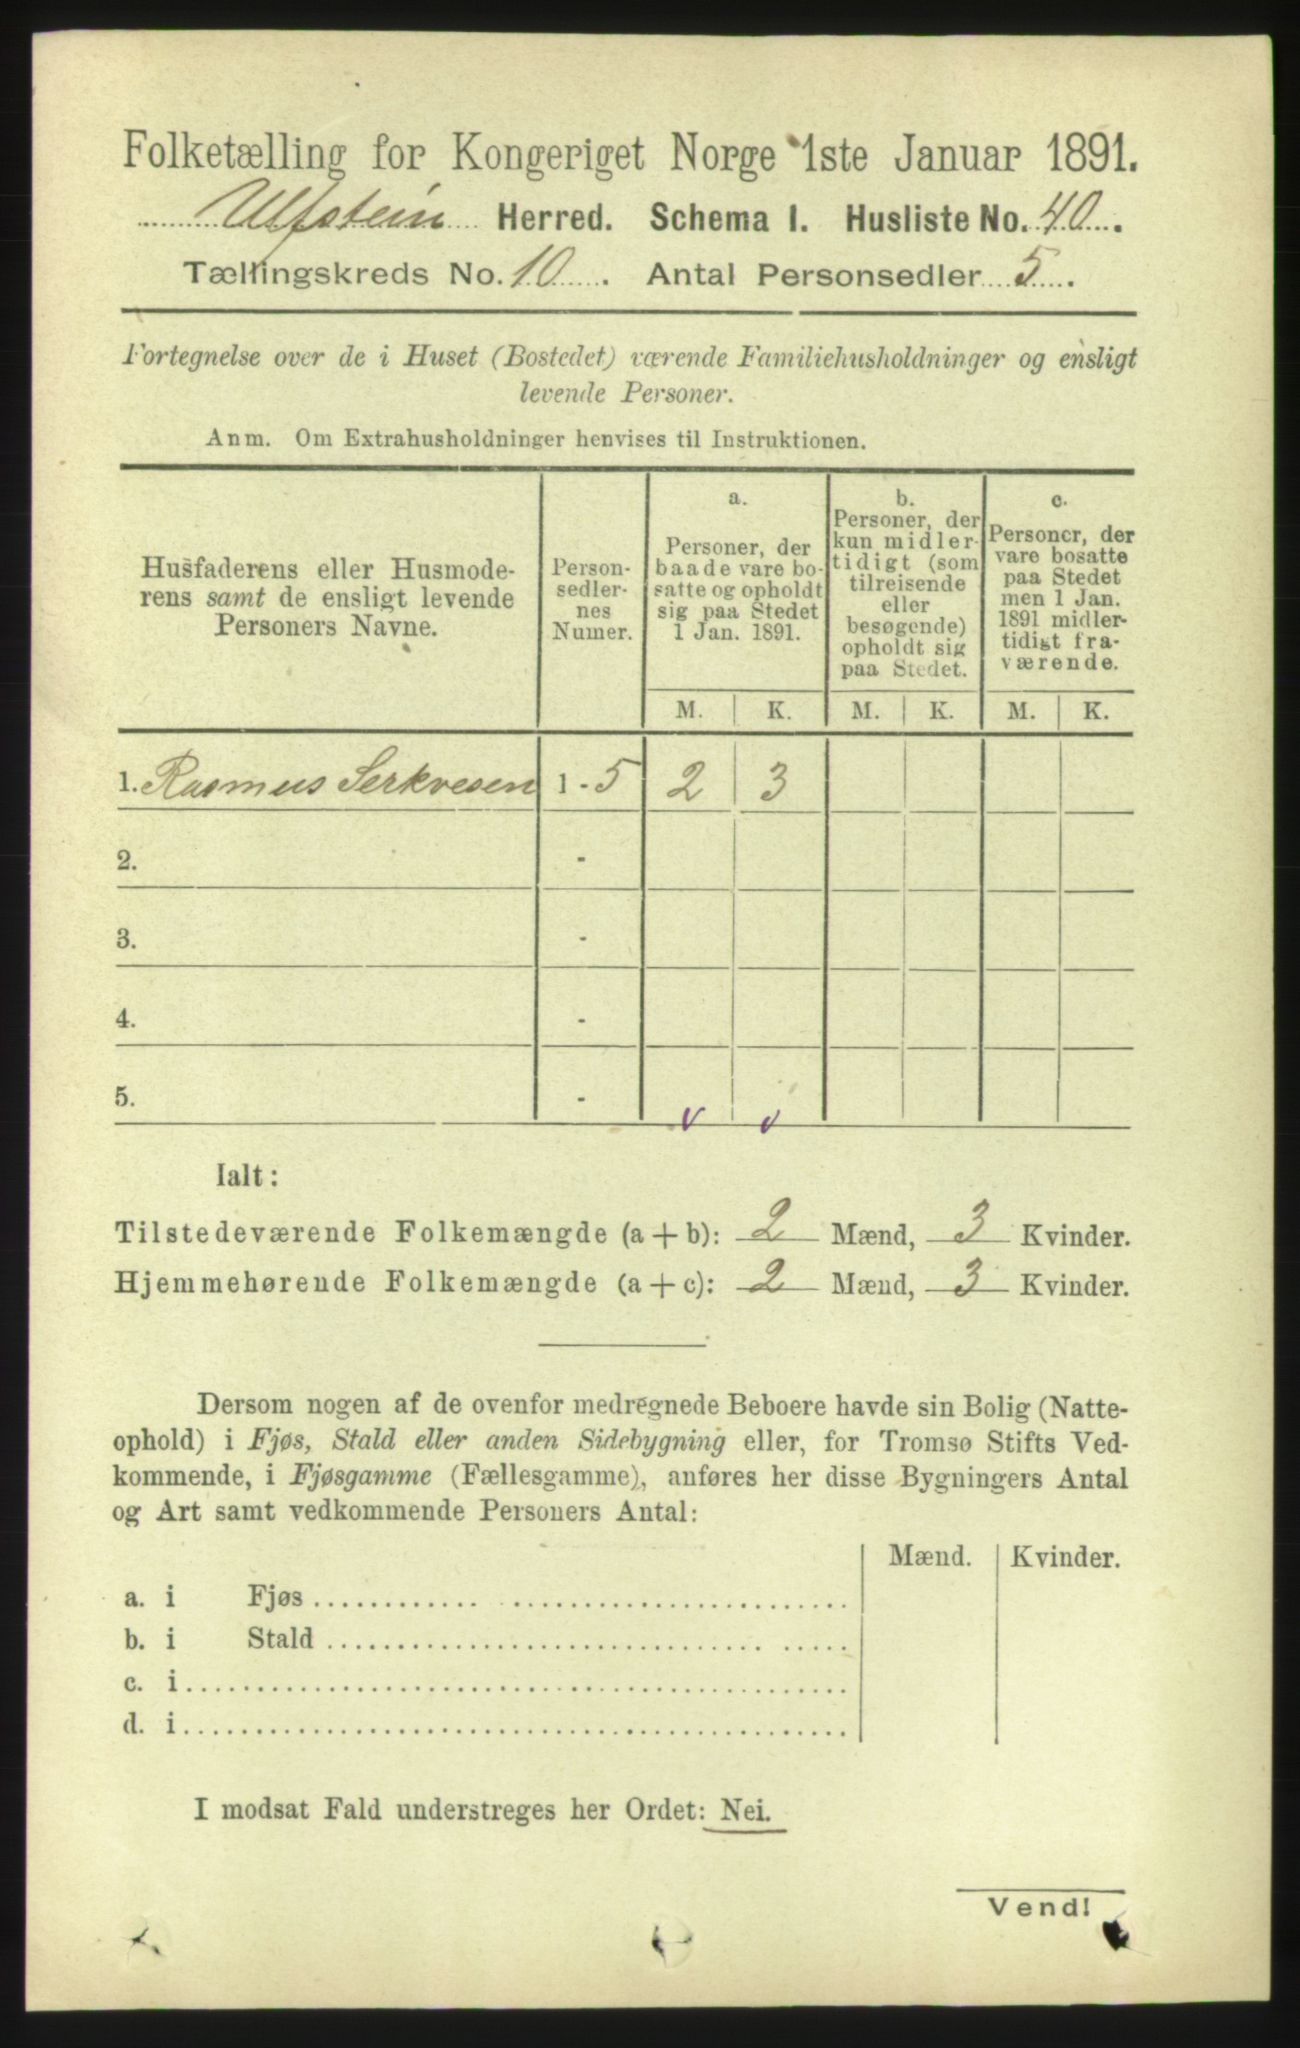 Folketælling for Kongeriget Norge 1ste Januar 1891.
Ulfstein Herred. Schema I. Husliste No. 40.
Tællingskreds No. 10. Antal Personsedler 5.
Fortegnelse over de i Huset (Bostedet) værende Familiehusholdninger og ensligt
levende Personer.
Anm. Om Extrahusholdninger henvises til Instruktionen.
Husfaderens eller Husmode-
rens samt de ensligt levende
Personers Navne.
Person-
sedler-
nes
Numer.
a.
Personer, der
baade vare bo-
satte og opholdt
sig paa Stedet
1 Jan. 1891.
b.
Personer, der
kun midler-
tidigt (som
tilreisende
eller
besøgende)
opholdt sig
paa Stedet.
c.
Personer, der
vare bosatte
paa Stedet
men 1 Jan.
1891 midler-
tidigt fra-
værende.
M. K. M. K. M. K.
1. Rasmus Serkvesen 1 - 5 2 3
2. -
3. -
4. -
5. -
Ialt:
Tilstedeværende Folkemængde (a + b): 2 Mænd, 3 Kvinder.
Hjemmehørende Folkemængde (a + c): 2 Mænd, 3 Kvinder.
Dersom nogen af de ovenfor medregnede Beboere havde sin Bolig (Natte-
ophold) i Fjøs, Stald eller anden Sidebygning eller, for Tromsø Stifts Ved-
kommende, i Fjøsgamme (Fællesgamme), anføres her disse Bygningers Antal
og Art samt vedkommende Personers Antal:
Mænd. Kvinder.
a. i Fjøs
b. i Stald
c. i
d. i
I modsat Fald understreges her Ordet: Nei.
Vend!